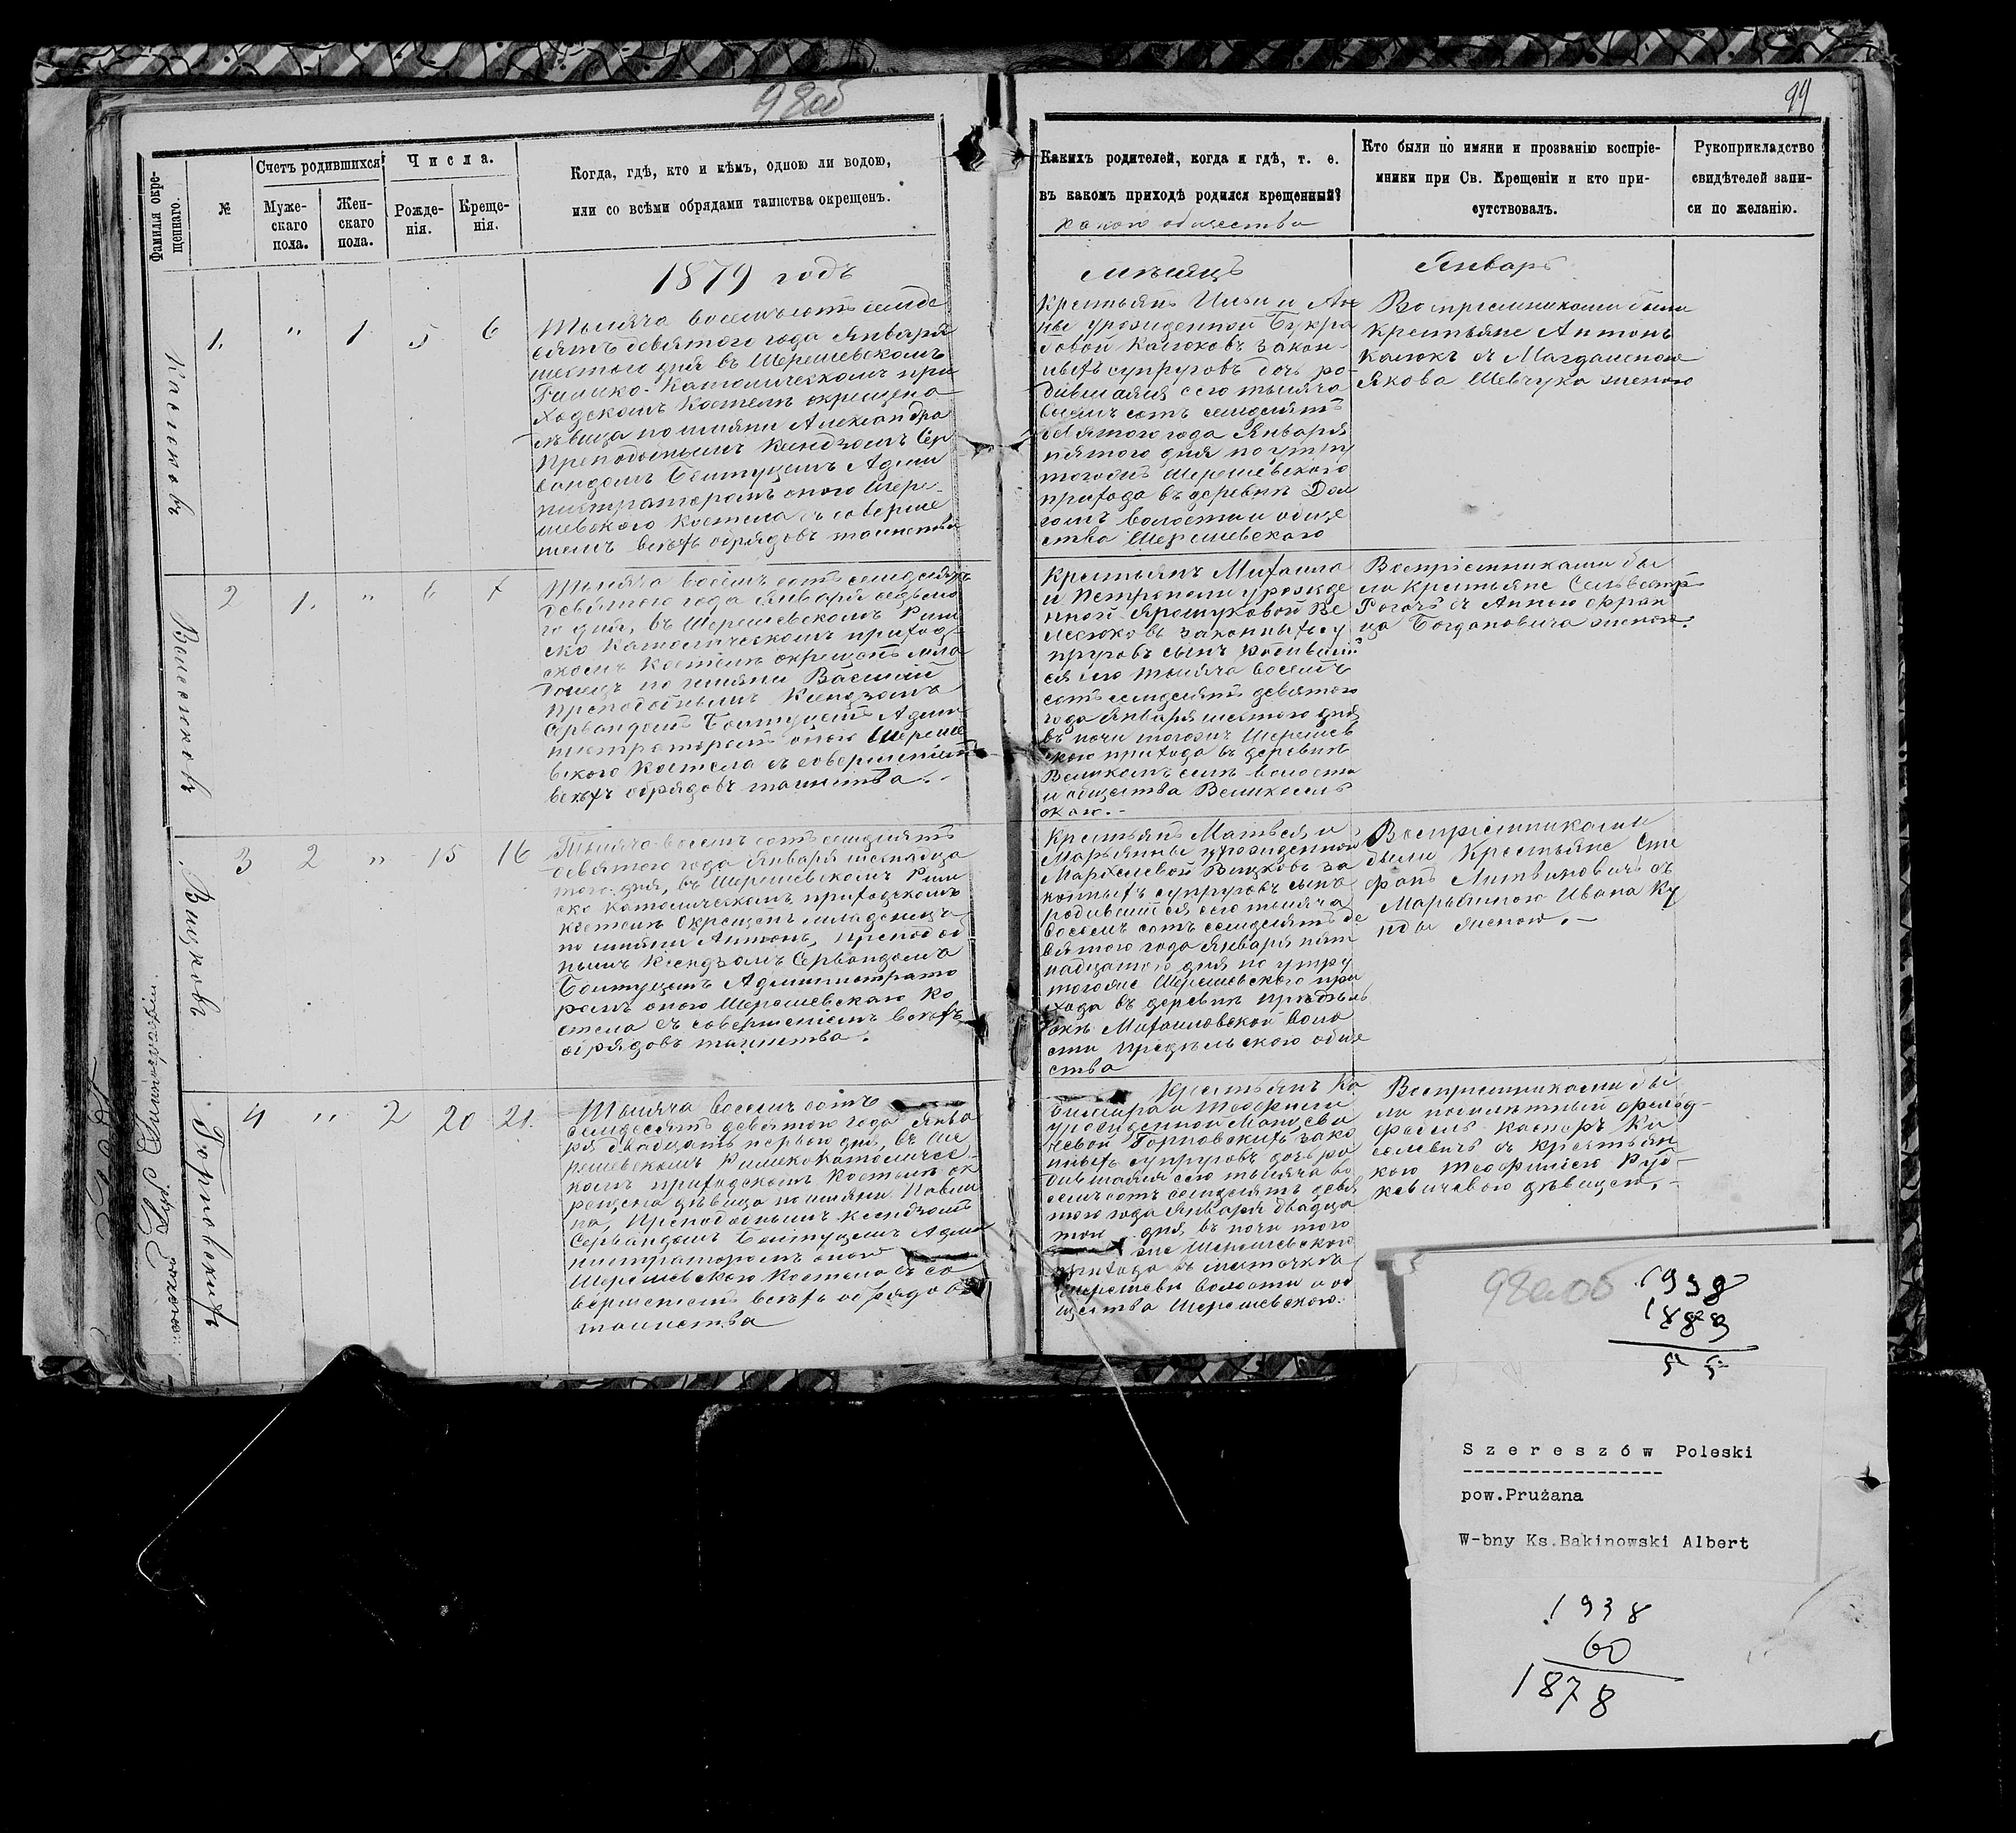 98об
99
Фамилія окре-
щеннаго.
№
Счетъ родившихся
Муже-
скаго
пола.
Жен-
скаго
пола.
Числа.
Рожде-
нія.
Креще-
нія.
Когда, гдѣ, кто и кѣмъ, одною ли водою,
или со всѣми обрядами таинства окрещенъ.
Какихъ родителей, когда и гдѣ, т. е.
въ какомъ приходѣ родился крещенный?
какого общества
Кто были по имяни и прозванію воспріе-
мники при Св. Крещеніи и кто при-
сутствовалъ.
Рукоприкладство
свидѣтелей запи-
си по желанію.
1879 годъ
мѣсяцъ
Январь
1. " 1 5 6
Тысяча восемьсотъ семьде
сятъ девятого года Января
шестого дня въ Шерешевскомъ
Римско-Католическомъ при
ходскомъ Костелѣ окрещена
дѣвица по имяни Александра
Преподобнымъ Ксендзомъ Сер
вандомъ Адми
нистраторомъ оного Шере-
шевского Костела съ соверше
ніемъ всѣхъ обрядовъ таинства
Крестьянъ Ильи и Ан
ны урожденной
Калюковъ закон-
ныхъ супруговъ дочь ро-
дившаяся сего тысяча
восемь сотъ семдесятъ
девятого года Января
пятого дня по утру
тогожъ Шерешевского
прихода въ деревнѣ Дол
гомъ волости и обще
ства Шерешевского
Воспріемниками были
Крестьяне Антонъ
Калюкъ съ Магдаленою
Якова Шевчука женою
Калюковъ
2 1. " 6 7
Тысяча восемь сотъ семдесятъ
девятого года Января седьмо
го дня, въ Шерешевскомъ Рим
ско Католическомъ приход-
скомъ Костелѣ окрещенъ мла
денецъ по имяни Василій
преподобнымъ Ксендзомъ
Сервандомъ Адми
нистраторомъ оного Шереше
вского Костела съ совершеніемъ
всѣхъ обрядовъ таинства.-
Крестьянъ Михаила
и Петронели урожде
нной Ярошуковой Ве
лесюковъ законныхъ су
пруговъ сынъ родивший
ся сего тысяча восемь
сотъ семдесятъ девятого
года Января шестого дня
въ ночи тогожъ Шерешев
ского прихода въ деревнѣ
Великомъ селѣ волости
и общества Великосель
ского.-
Воспріемниками бы
ли Крестьяне Сильвестръ
Рогачъ съ Анною Фран
ца Богдановича женою.
Велесюковъ
3 2 " 15 16
Тысяча восемь сотъ семдесятъ
девятого года Января шеснадца
того дня, въ Шерешевскомъ Рим
ско Католическомъ приходскомъ
Костелѣ Окрещенъ младенецъ
по имяни Антонъ, преподоб
нымъ Ксендзомъ Сервандомъ
Администрато
ромъ оного Шерешевскаго Ко
стела съ совершеніемъ всѣхъ
обрядовъ таинства.
Крестьянъ Матвея и
Марьянны урожденной
Вицковъ за
конныхъ супруговъ сынъ
родившійся сего тысяча
восемь сотъ семдесятъ де
вятого года Января пят
надцатого дня по утру
тогоже Шерешевского при
хода въ деревнѣ
Михайловской воло
сти обще
ства
Воспріемниками
были Крестьяне Сте
фанъ Литвиновичъ съ
Марьянною Ивана Ку
нды женою.-
Вицковъ
4 " 2 20 21.
Тысяча восемь сотъ
семдесятъ девятого года Янва
ря двадцать первого дня, въ Ше
решевскомъ РимскоКатоличес-
комъ приходскомъ Костелѣ ок
рещена дѣвица по имяни Павли
на, Преподобнымъ Ксендзомъ
Сервандомъ Адми
нистраторомъ оного
Шерешевского Костела съ со
вершеніемъ всѣхъ обрядовъ
таинства
Крестьянъ Ка
зимира и Теофилии
урожденной
Горновскихъ зако
нныхъ супруговъ дочь ро
дившаяся сего тысяча во
семь сотъ семдесятъ девя
того года Января двадца
того дня, въ ночи того
же Шерешевского
прихода въ мѣстечкѣ
Шерешеви волости и об
щества Шерешевского.
Воспріемниками бы
ли
Касперъ Ки
селевичъ съ Крестьян
кою Теофилиею Руд-
кевичевою дѣвицею.-
Горновскихъ
98аоб
1938
1883
55
Szereszów Poleski
pow.Prużana
W-bny Ks.Bakinowski Albert
1938
60
1878